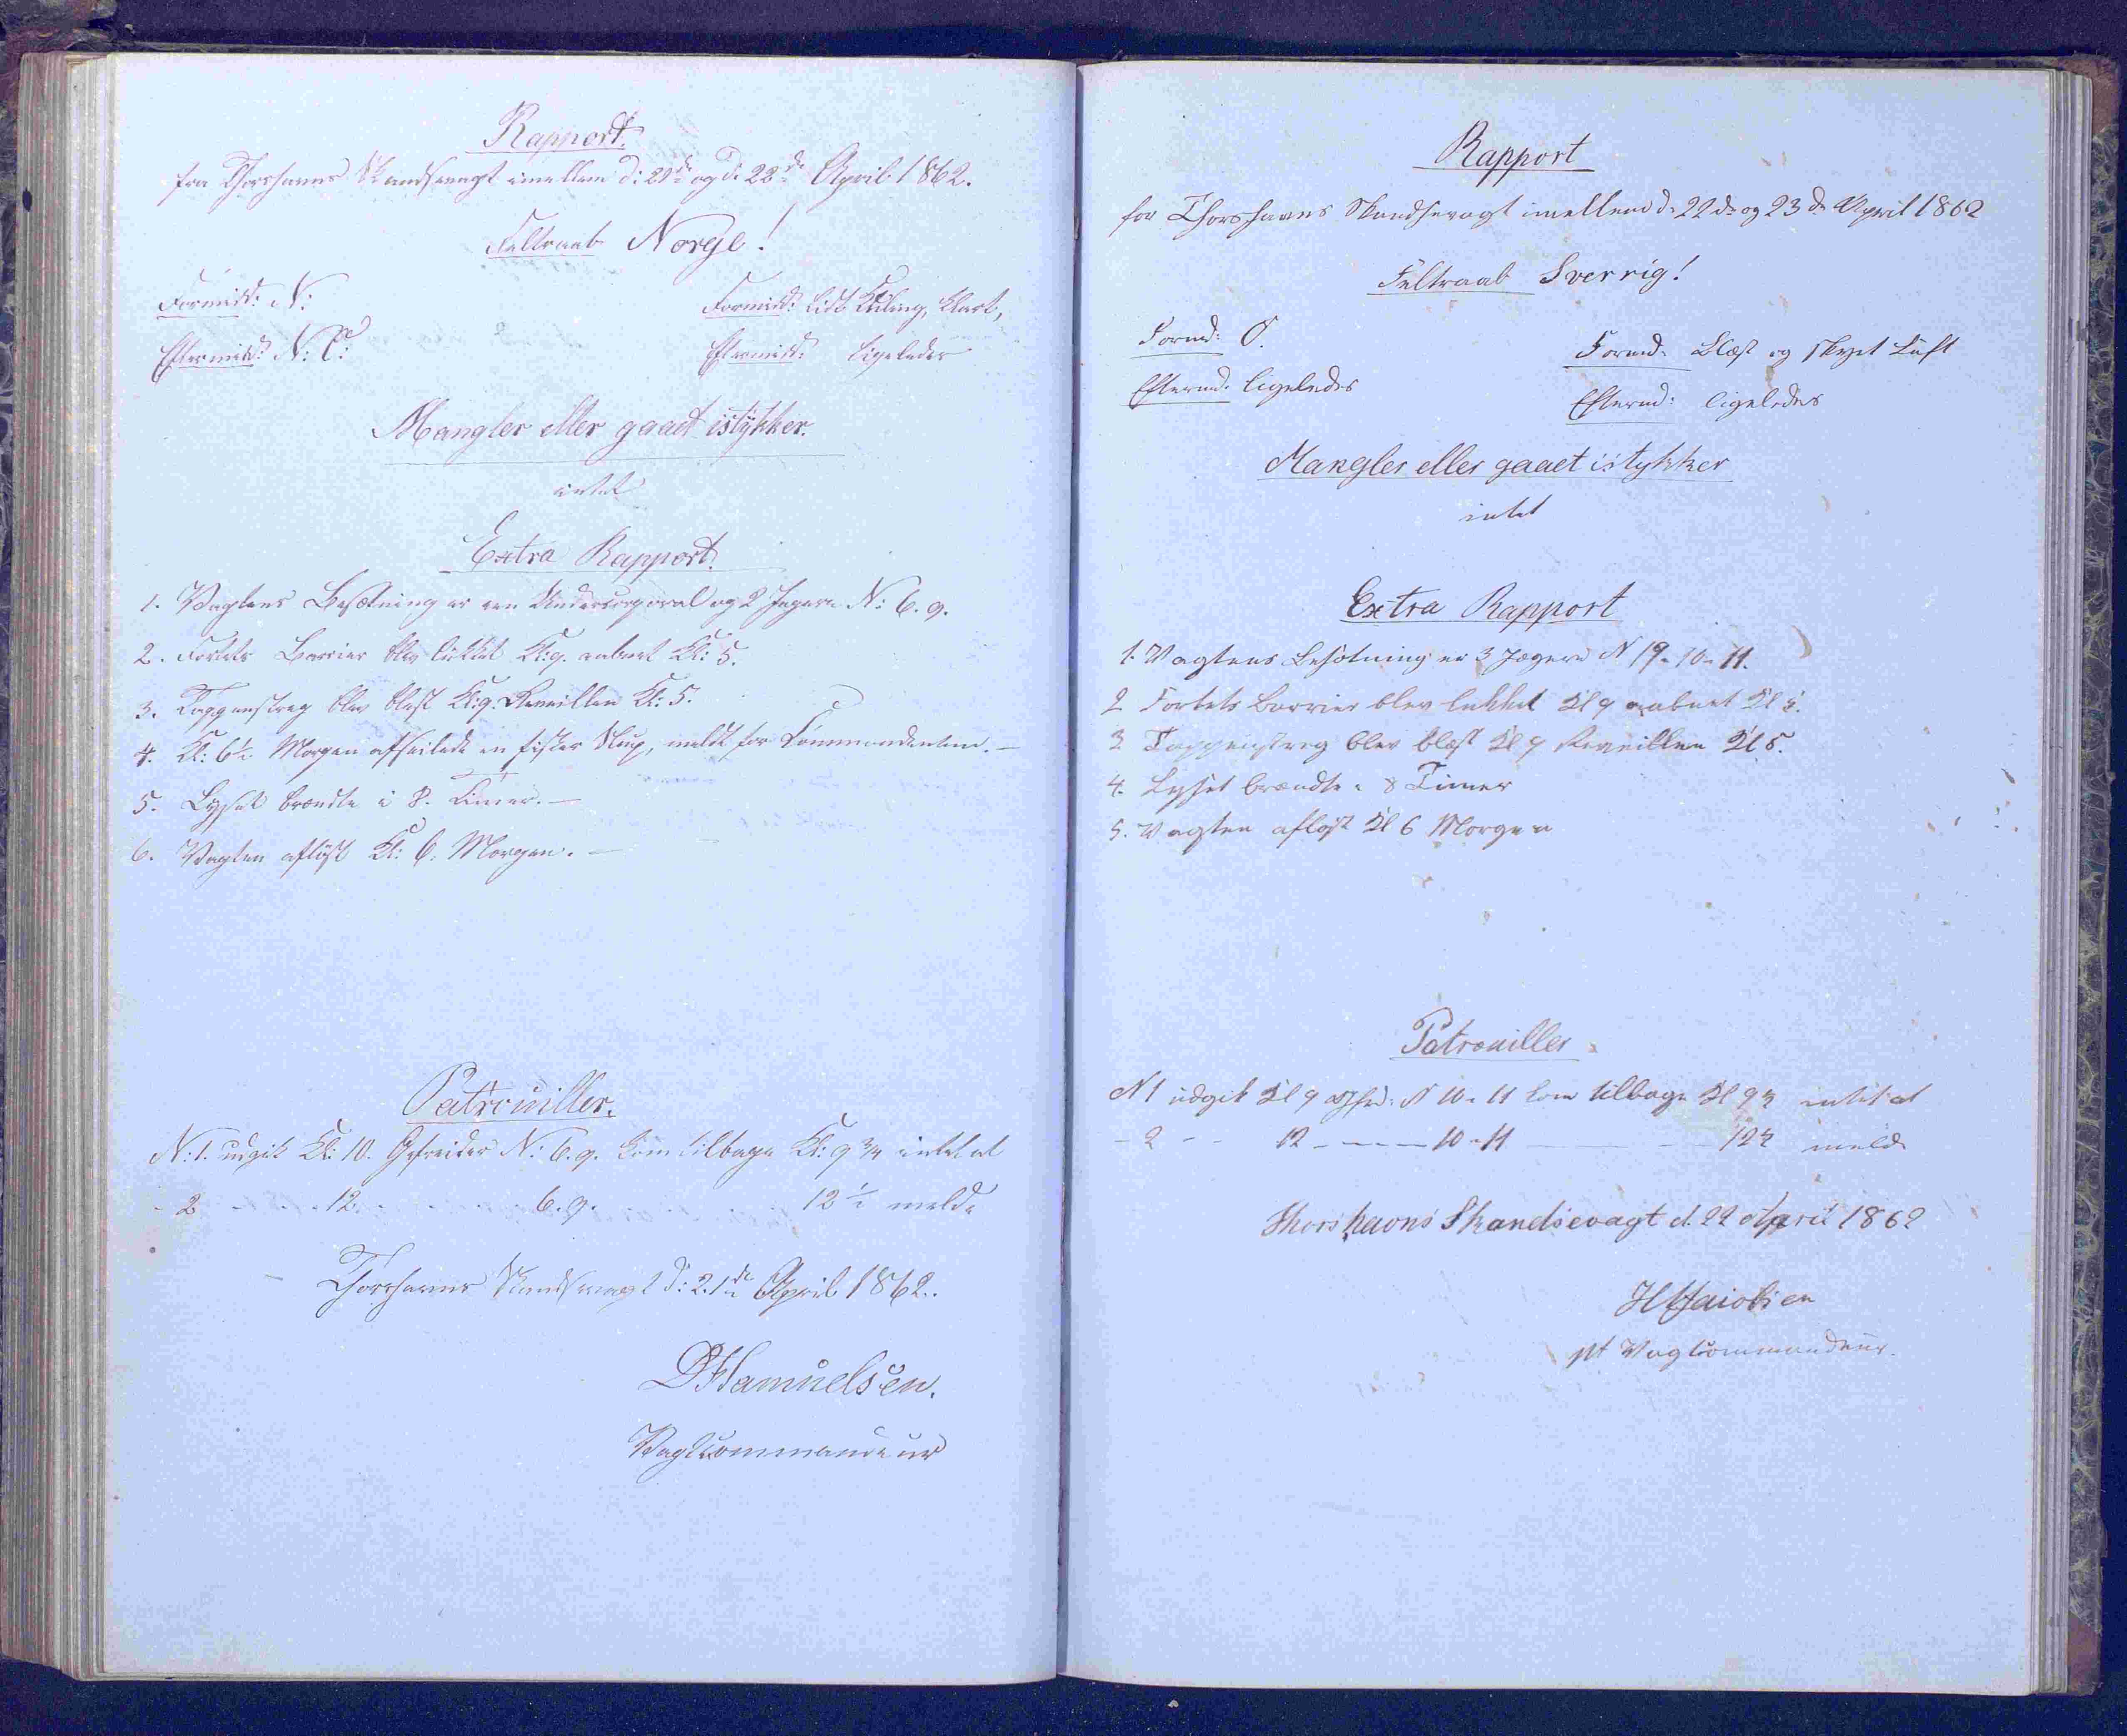 Rapport.
fra Thorshavns Skandsevagt imellem d: 21de og d: 22de April 1862.
Feltraab Norge!
Formidd: N:
Formidd: lidt Kuling, klart,
Eftermidd: N: O:
Eftermidd: ligeledes
Mangler eller gaaet istykker.
intet
Extra Rapport.
1. Vagtens Besætning er een Undercorporal og 2 Jægere N: 6. 9.
2. Fortets Barrier blev lukket Kl: 9. aabnet Kl: 5.
3. Tappenstreg blev blæst Kl: 9. Reveillen Kl: 5.
4. Kl: 6½ Morgen afseilede en fisker Slup, meldt for Commandanten. —
5. Lyset brændte i 8. Timer. —
6. Vagten afløst Kl: 6. Morgen. —
Patrouiller.
N: 1. udgik Kl: 10. Gefreider N: 6. 9. kom tilbage Kl: 9¾ intet at
- 2 - - - 12. - - - - 6. 9. - - - - - 12½ melde
Thorshavns Skandsevagt d: 21de April 1862.
DHSamuelsen.
Vagtcommandeur
Rapport
for Thorshavns Skandsevagt imellem d. 22de og 23de April 1862
Feltraab Sverrig!
Formd: O.
Formd: Blæst og skyet Luft
Eftermd: ligeledes
Eftermd: ligeledes
Mangler eller gaaet istykker
intet
Extra Rapport
1. Vagtens Besætning er 3 Jægere N 19 - 10 - 11.
2 Fortets Barrier blev lukket Kl 9 aabnet Kl 5.
3 Tappenstreg blev blæst Kl 9 Reveillen Kl 5.
4. Lyset brændte i 8 Timer
5. Vagten afløst Kl 6 Morgen
Patrouiller
N 1 udgik Kl 9 N 10 - 11 kom tilbage Kl intet at
- 2 - - 12 - — — — 10 - 11 — — melde
Thorshavns Skandsevagt d. 22 April 1862
Jacobsen
pt Vagtcommandeur.